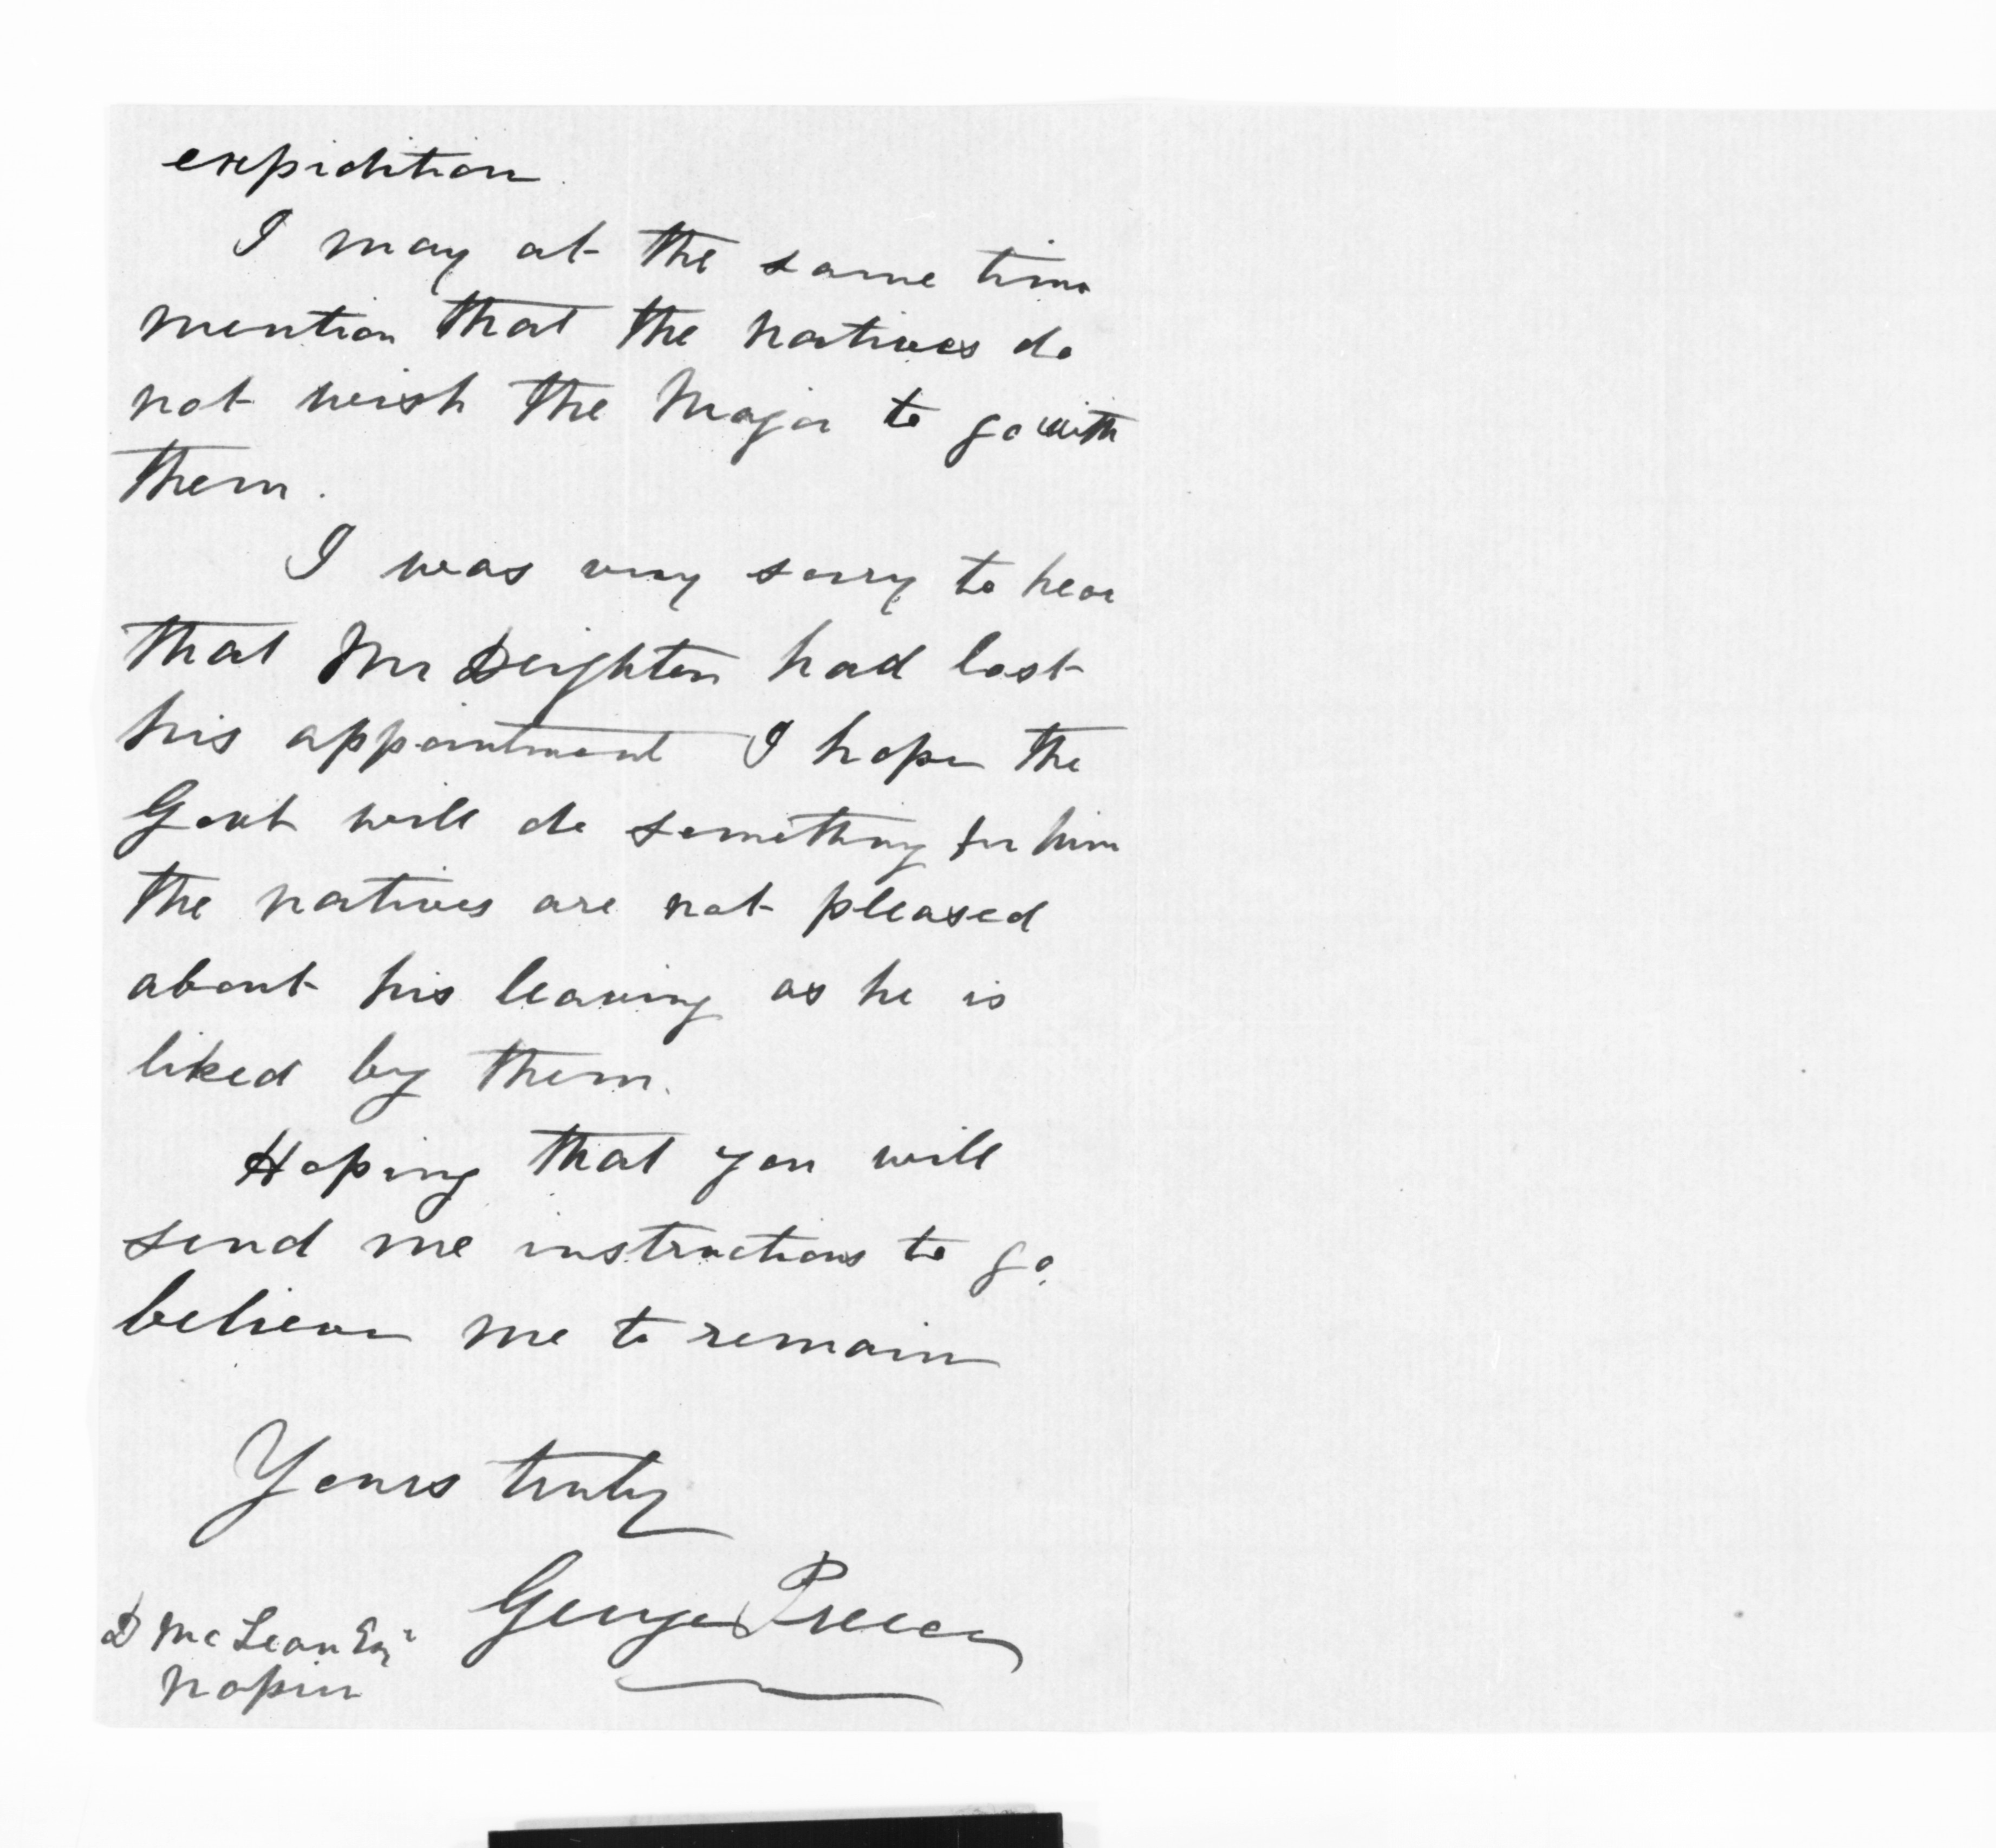 expidition.
I may at the same time
mention that the natives do
not wish the Major to go with
them.
I was very sorry to hear
that Mr Deighton had lost
his appointment I hope the
Govt will do something for him
the natives are not pleased
about his leaving as he is
liked by them.
Hoping that you will
send me instructions to go.
believe me to remain
Yours truly
George Preece
D McLean Esqr
Napier